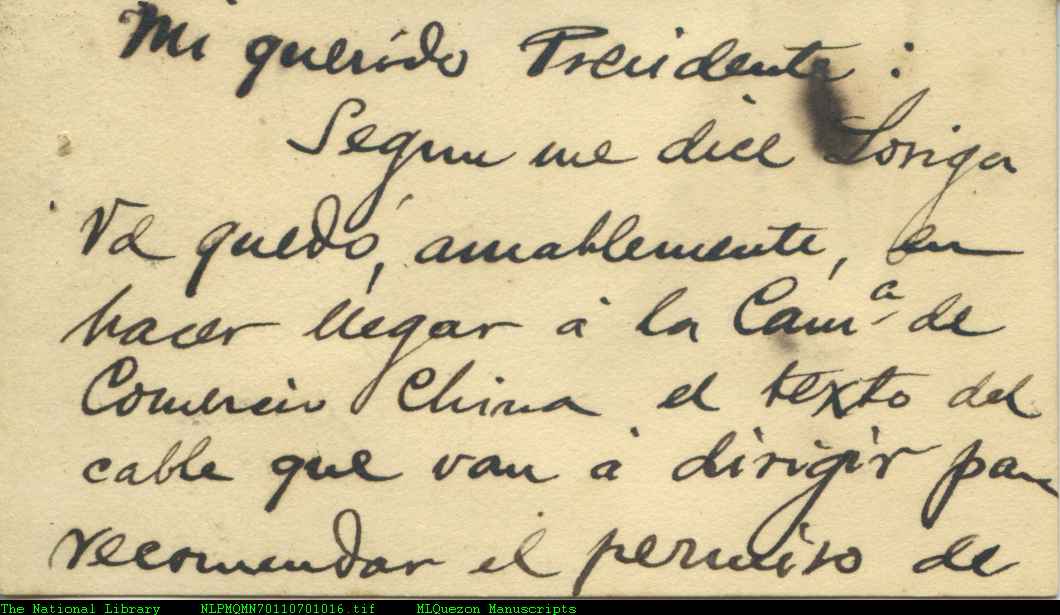 Mi querido Presidente :
Segun me dice Loriga
Vd quedó, amablemente, en
hacer llegar á la Cam.ª de
Comercio China el texto del
cable que van á dirigir para
recomendar el permiso de
The National Library NLPMQMN70110701016.tif MLQuezon Manuscripts